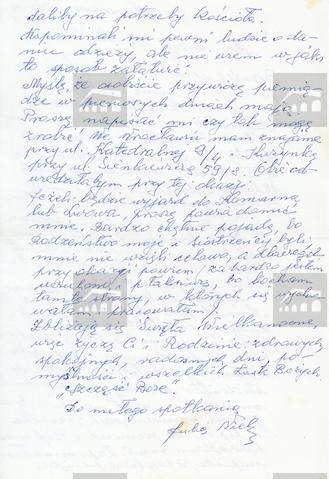 daliby na potrzeby Kościoła.
Wspominali mi pewni ludzie o da-
nice odzieży, ale nie wiem w jaki
to sposób załatwić.
Myślę, że osobiście przywiozę pienią-
dze w pierwszych dniach maja.
Proszę napisać mi czy tak mogę
zrobić, We Wrocławiu mam znajomą
przy ul. Katedralnej 4/4 i Kuzynkę
przy ul. Sienkiewicza 59/8. Obie od-
wiedziałabym przy tej okazji.
Jeżeli będzie wyjazd do
lub Lwowa, proszę powiadomić
mnie. Bardzo chętnie pojadę, bo
Rodzeństwo moje i siostrzeńcy byli
mnie nie wzięli celowo, a dlaczego
przy okazji powiem / za bardzo jestem
i płaczliwa, bo kocham
tamte strony, w których się wycho-
wałam, pracowałam /
Zbliżają się Święta Wielkanocne,
więc życzę Ci i Rodzinie: zdrowych
spokojnych, radosnych dni, po-
myślności i wszelkich Łask Bożych.
"Szczęść Boże".
Do miłego spotkania